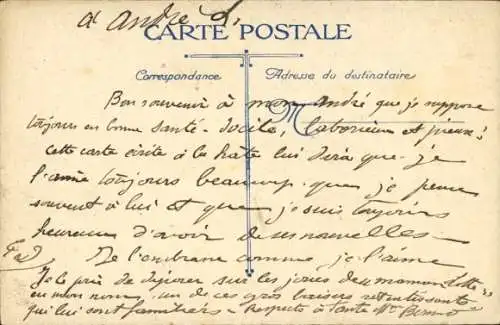 à André L.
CARTE POSTALE
Correspondance
Adresse du destinataire
Bon souvenir à mon André que je suppose
toujours en bonne santé - docile, laborieux et pieux
cette carte écrite à la hâte lui dira que je
l'aime toujours beaucoup que je pense
souvent à lui et que je suis toujours
heureux d'avoir de ses nouvelles.
Je l'embrasse comme je l'aime
Je le prie de déposer sur les joues de sa maman
en mon nom, un de ces gros baisers retentissants
qui lui sont familiers - Respects à Tante